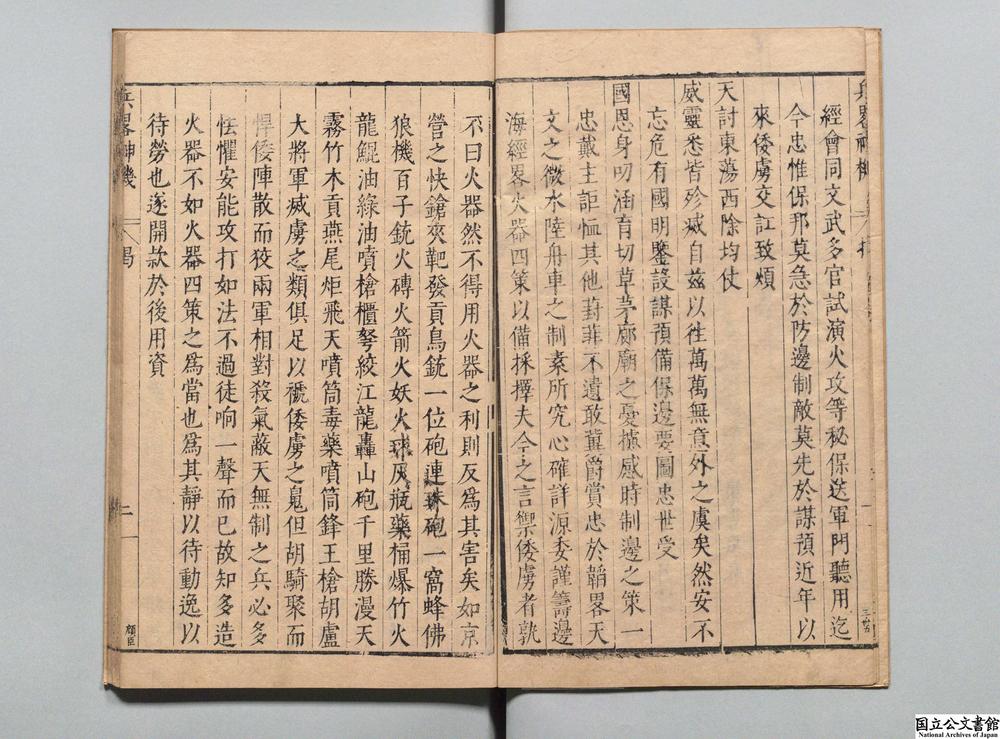 兵畧神機
經會同文武多官試演火攻等秘保送軍門聽用迄
今忠惟保邦莫急於防邊制敵莫先於謀預近年以
來倭虜交訌致煩
天討東蕩西除均仗
威靈悉皆殄滅自茲以徃萬萬無意外之虞矣然安不
忘危有國明鑒設謀預備保邊要圖忠世受
國恩身叨涵育切草茅廊廟之憂摅感時制邊之策一
忠戴主詎恤其他葑菲不遺敢冀爵賞忠於韜畧天
文之微水陸舟車之制素所究心確詳源委謹籌邊
海經畧火器四策以備採擇夫今之言禦倭虜者孰
不曰火器然不得用火器之利則反爲其害矣如京
營之快鎗夾靶發貢鳥銃一位砲連珠砲一窩蜂佛
狼機百子銃火磚火箭火妖火球灰瓶藥桶爆竹火
龍鯤油綠油噴槍櫃弩絞江龍轟山砲千里勝漫天
霧竹木貢燕尾炬飛天噴筒毒藥噴筒鋒王槍胡盧
大將軍滅虜之類俱足以褫倭虜之䰟但胡騎聚而
悍倭陣散而狡兩軍相對殺氣蔽天無制之兵必多
怯懼安能攻打如法不過徒响一聲而已故知多造
火器不如火器四策之爲當也爲其靜以待動逸以
待勞也遂開款於後用資
兵畧神機
曷
二
顧臣
国立公文書館
National Archives of Japan